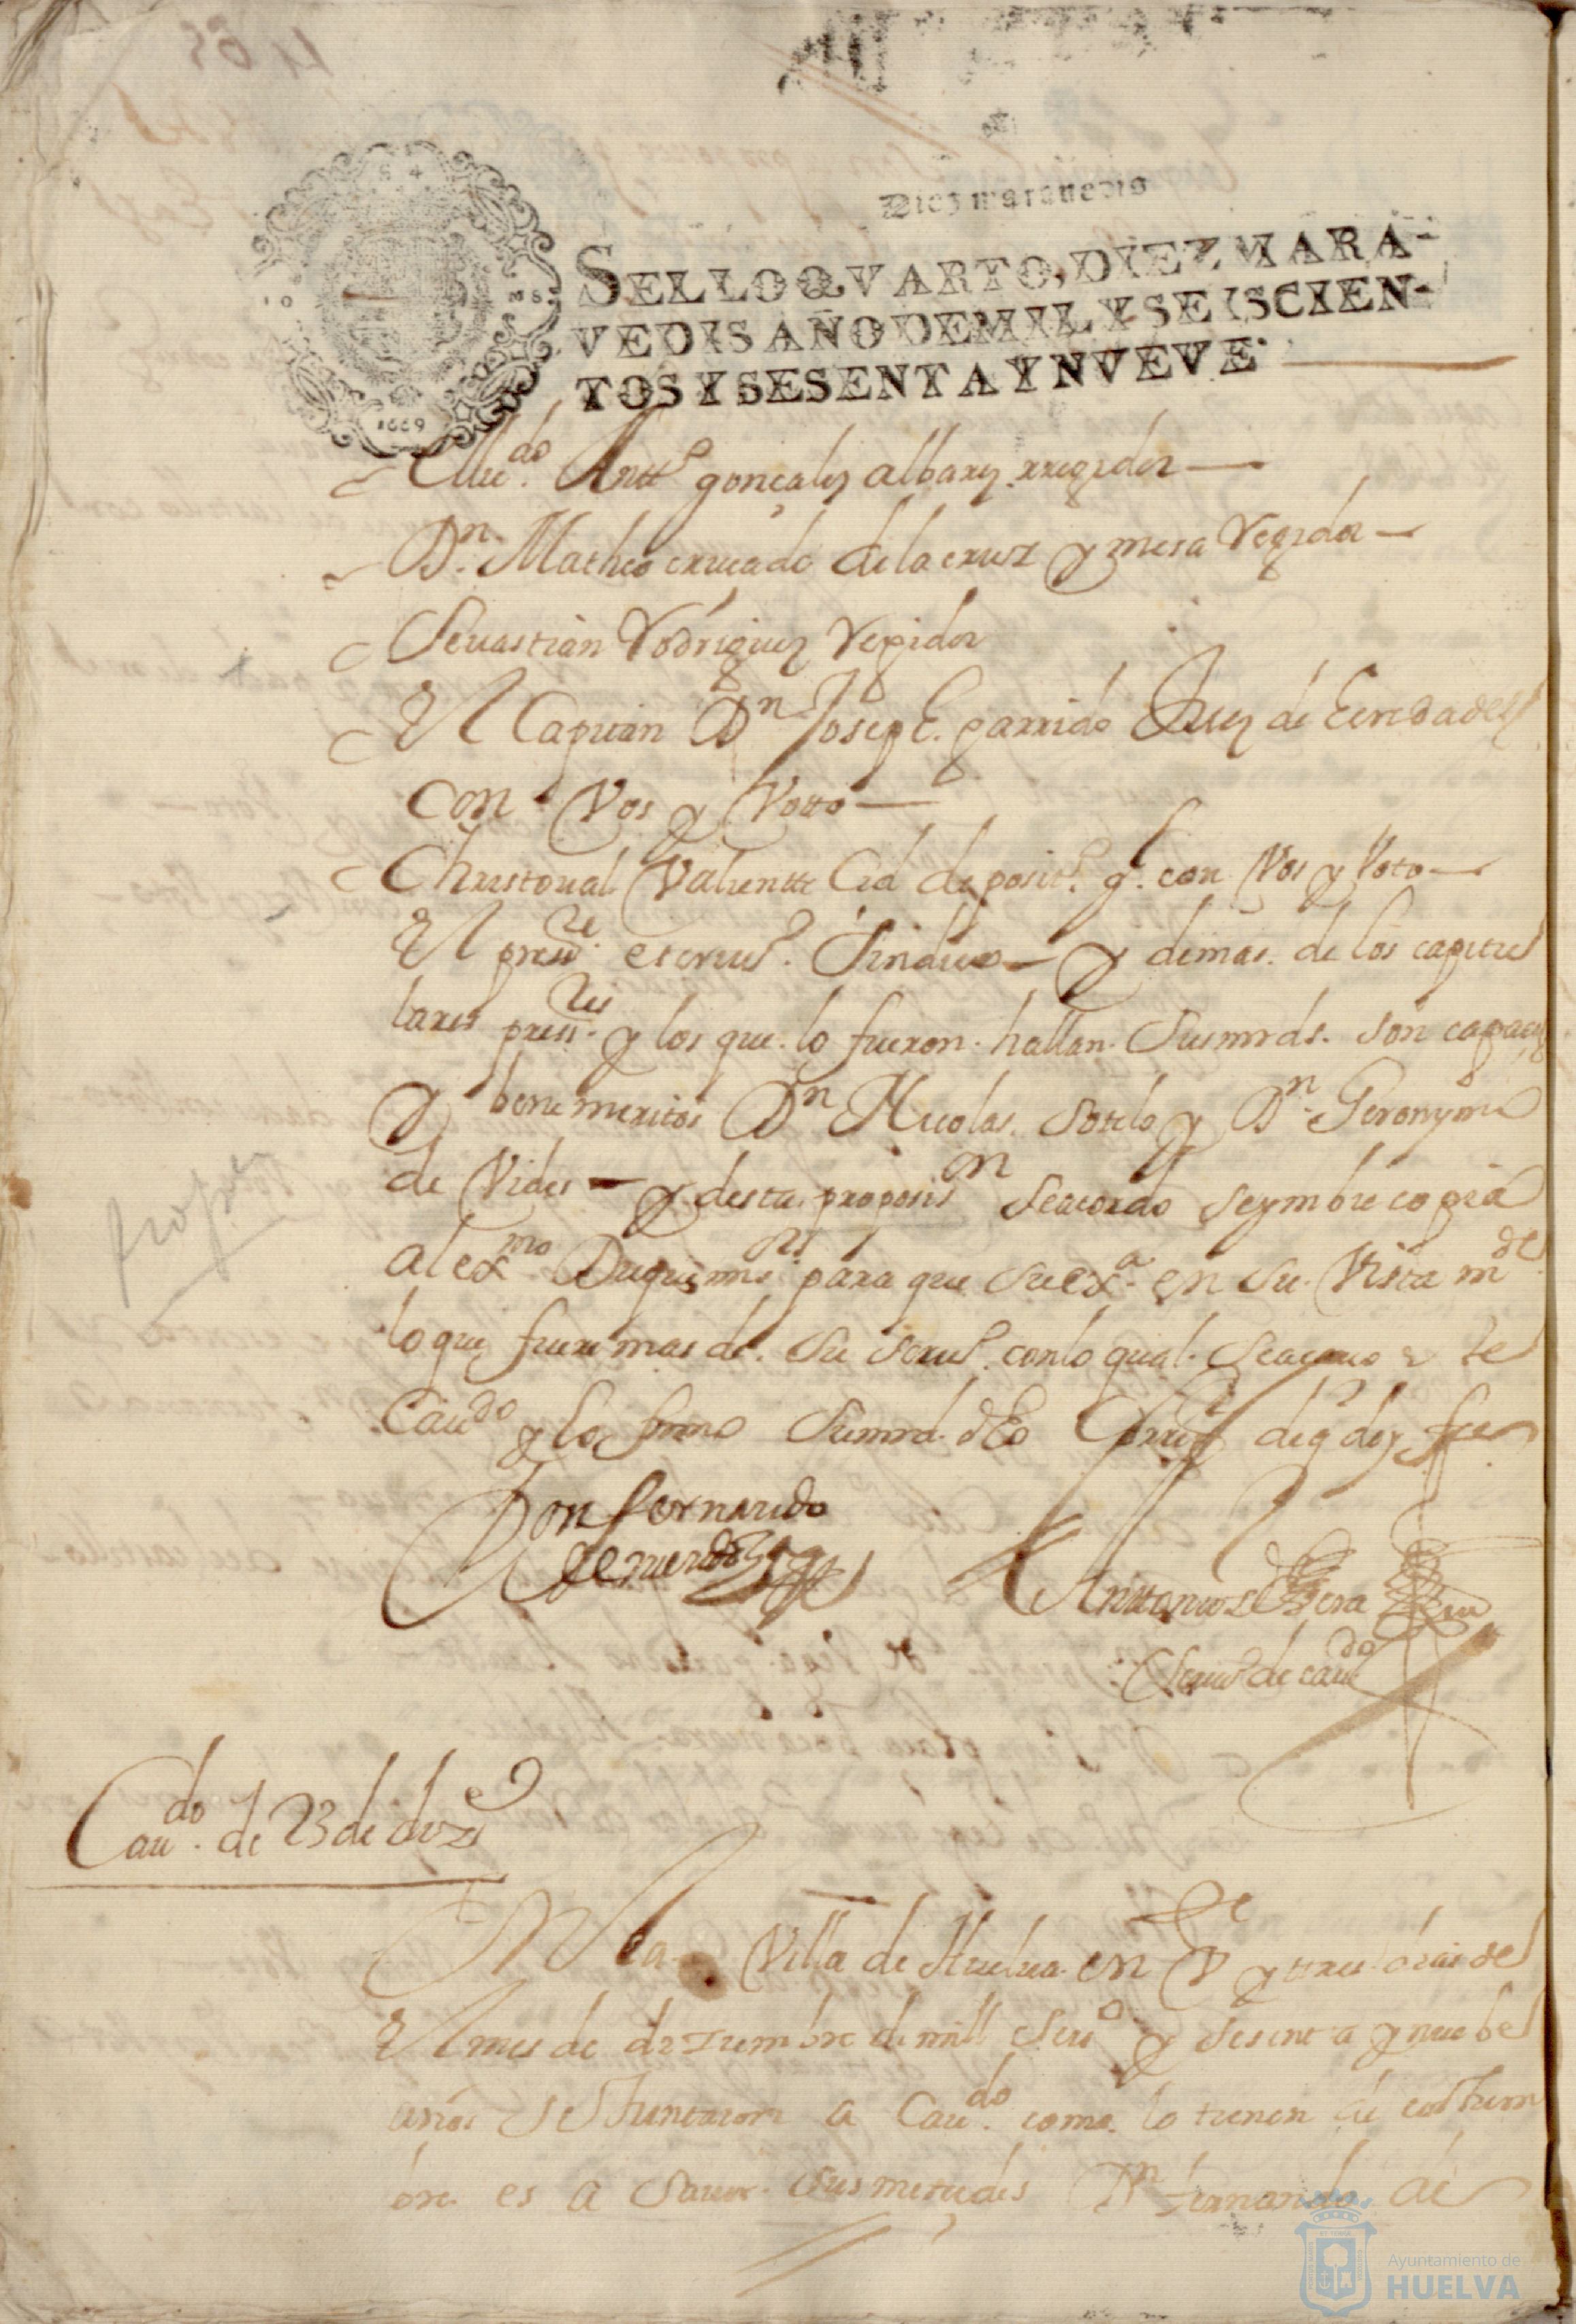 Diez maravedis
SELLO QVARTO, DIEZ MARA-
VEDIS AÑO DE MIL Y SEISCIEN-
TOS Y SESENTA Y NVEVE.
1669
Antt.º gonçalez albarez rregidor
Dn. Matheo cruçado de la cruz y mesa Regidor
Seuastian Rodriguez Regidor
El Capitan Dn Joseph garrido Juez de heredades
con Vos y Votto
Christoual Valiente Cid deposit.º g.l con Vos y Voto
El press.te escriu.º Sindico y demas de los capitu
lares press.tes y los que lo fueron hallan Sus mrds. son capaçes
y benemeritos Dn Nicolas Sotelo y Dn. Geronymo
de Vides y desta proposison se acordo se ymbie copia
al exmo. Duque mi s.r para que su ex.a en su Vista m.de
lo que fuere mas de su seru.º con lo qual se acauo este
Cau.do y lo firmo su mrd. dho Corre.r de q doy fee
Don fernando
Antonio de Sera
Scriu.º de cau.do
Cau.do de 23 de dize
En la Villa de Huelua en Ve y tres dias de
El mes de diziembre de mill seis.º y sesenta y nuebe
años Se Juntaron a Cau.do como lo tienen de costum
bre es a Sauer Sus mercedes Dn fernando de
Ayuntamiento de
HUELVA